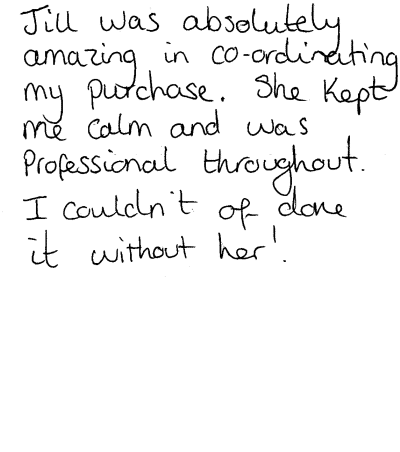 Jill was absolutely
amazing in co-ordinating
my purchase. She kept
me calm and was
Professional throughout.
I couldn't of done
it without her!